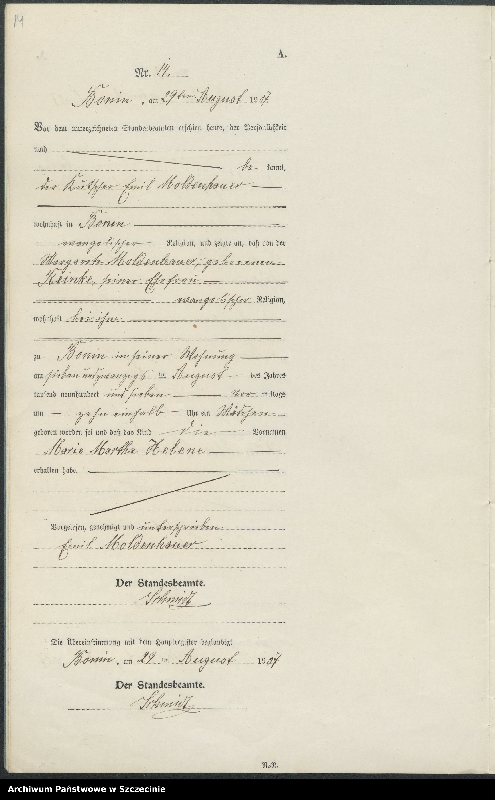 14
A.
Nr. 14.
Bonin, am 29ten August 1907.
Vor dem unterzeichneten Standesbeamten erschien heute, der Persönlichkeit
nach
be kannt,
der Kutscher Emil Moldenhauer
wohnhaft in Bonin
evangelischer Religion, und zeigte an, daß von der
Margarete Moldenhauer, geborenen
Heinke, seiner Ehefrau
evangelischer Religion,
wohnhaft bei ihm
zu Bonin in seiner Wohnung
am siebenundzwanzigsten August des Jahres
tausend neunhundert und sieben Vor mittags
um zehn einhalb Uhr ein Mädchen
geboren worden sei und daß das Kind die Vornamen
Marie Martha Helene
erhalten habe.
Vorgelesen, genehmigt und unterschrieben
Emil Moldenhauer
Der Standesbeamte.
Schmidt
Die Übereinstimmung mit dem Hauptregister beglaubigt
Bonin, am 29ten August 1907
Der Standesbeamte.
Schmidt
Archiwum Państwowe w Szczecinie